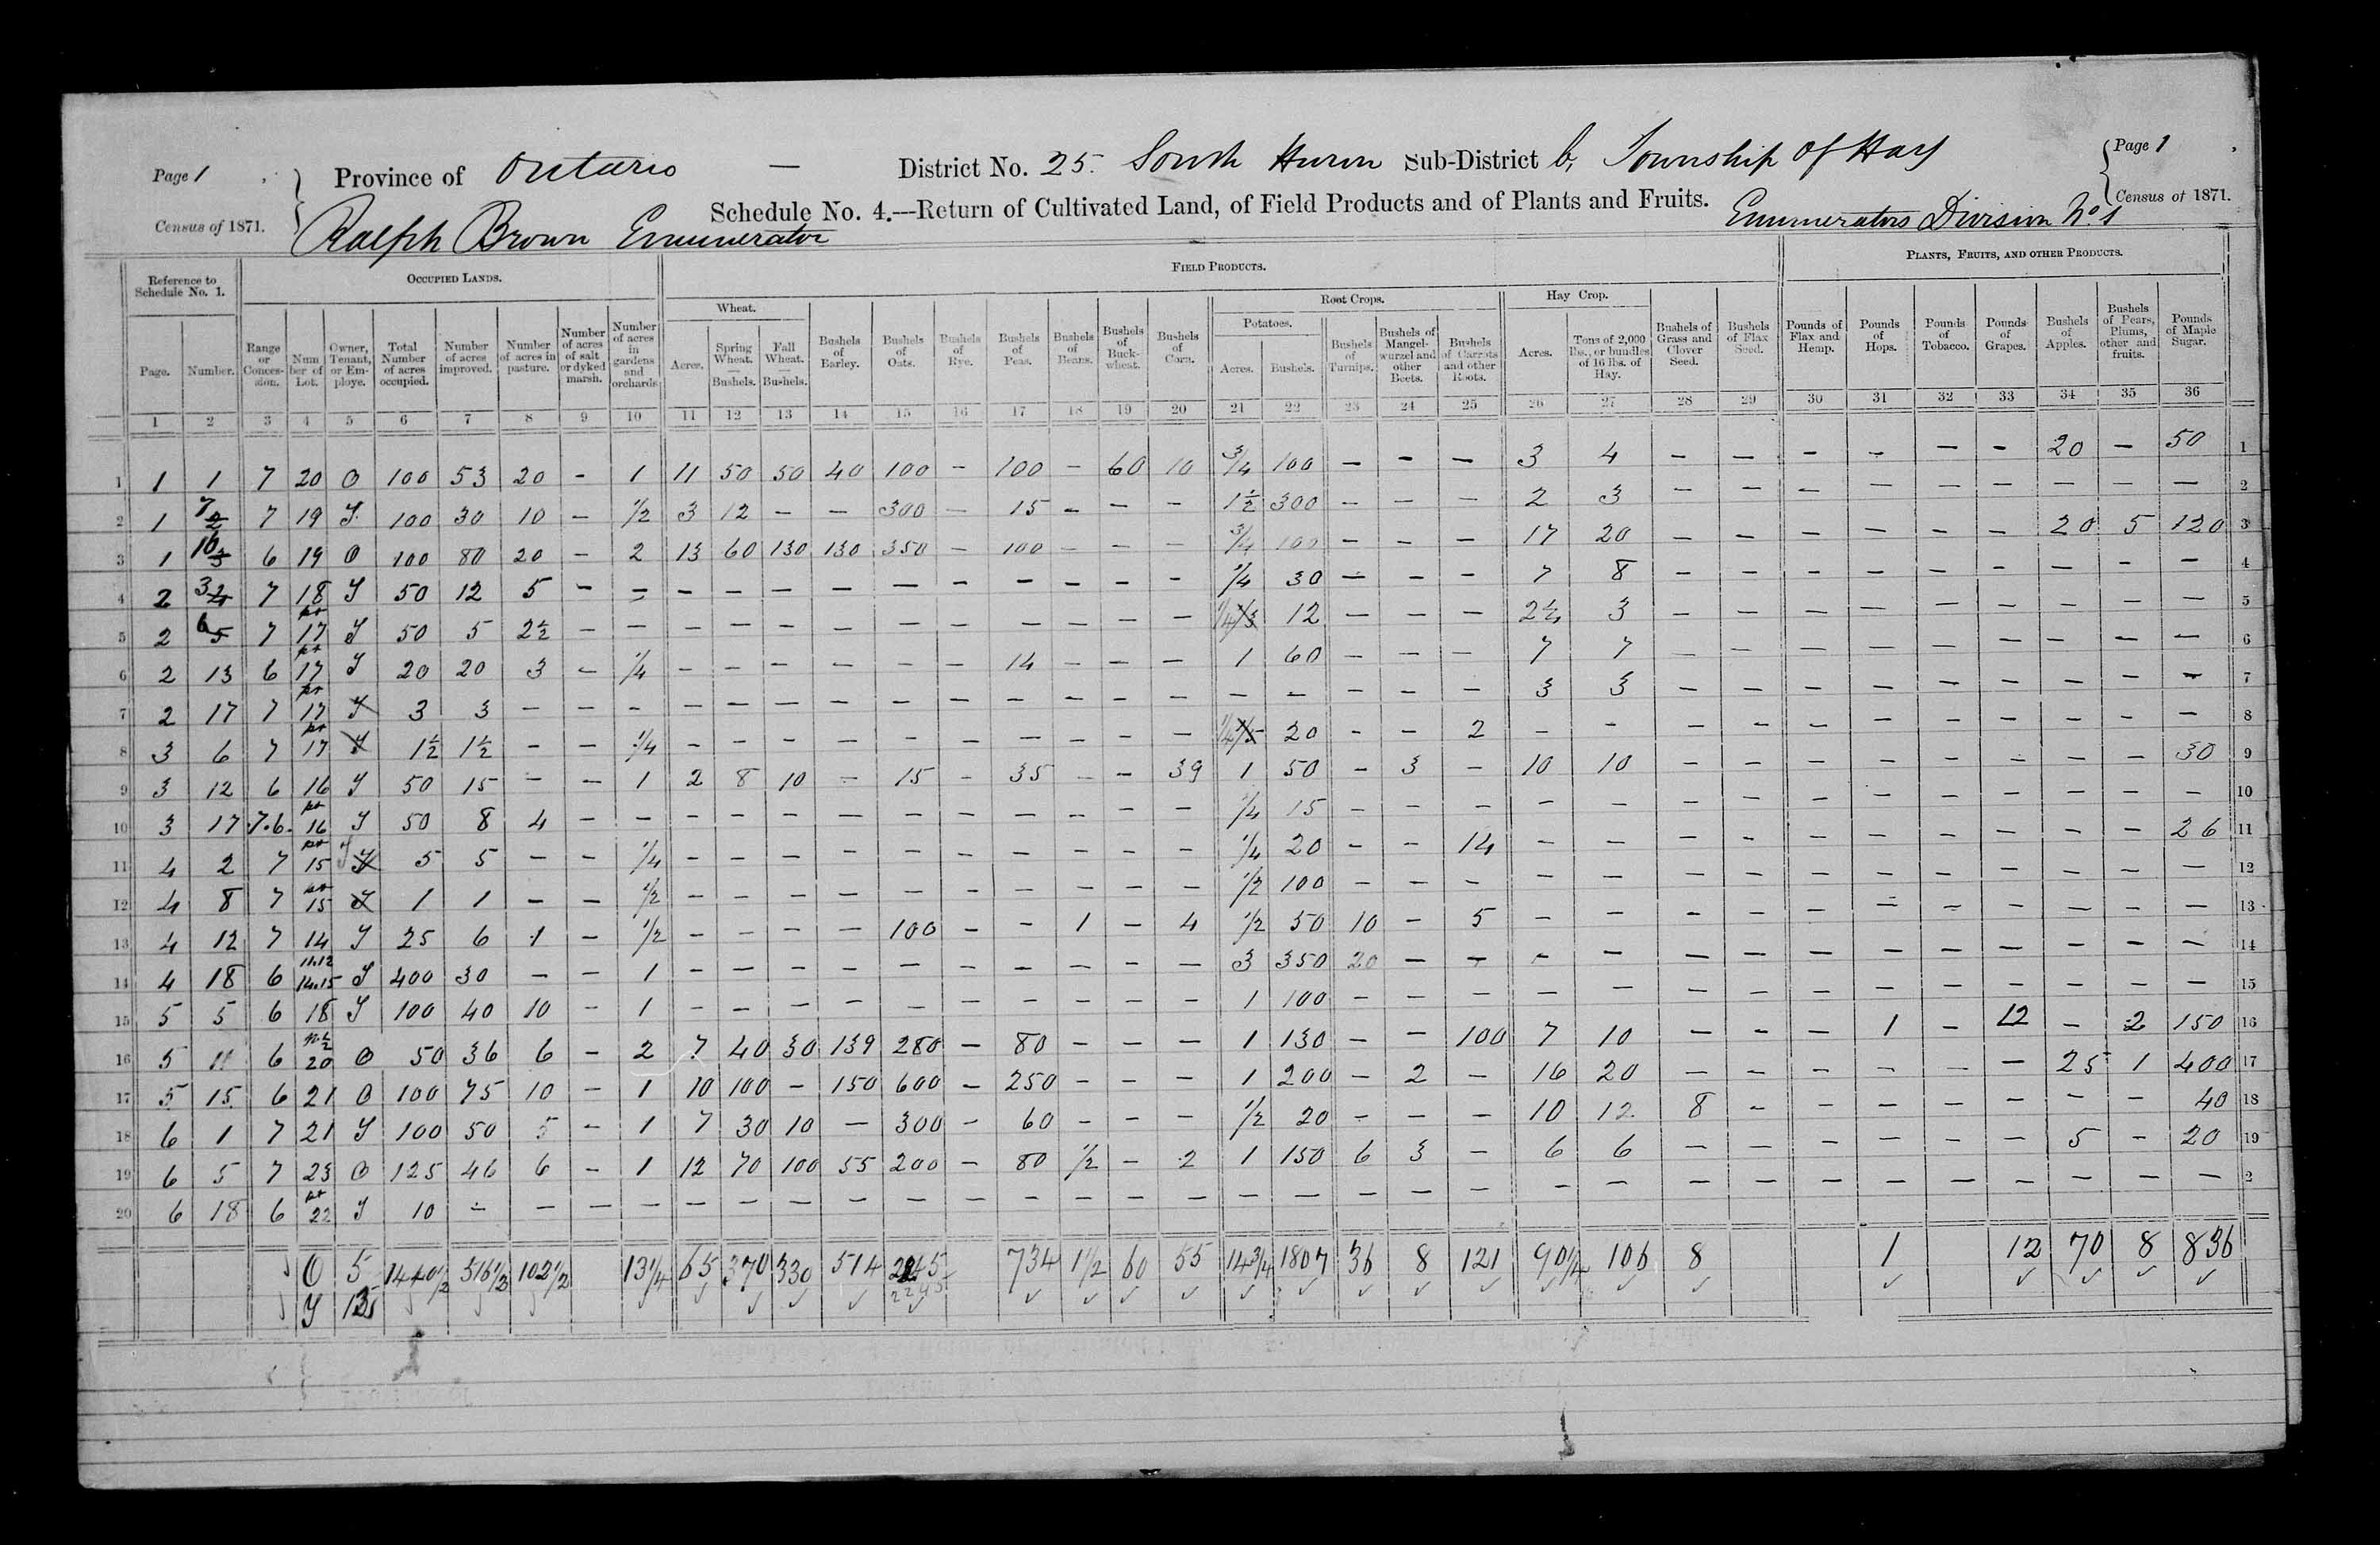 Page 1
Province of Ontario — District No. 25. South Huron Sub-District b, Township of Hay
Page 1
Census of 1871.
Schedule No. 4.---Return of Cultivated Land, of Field Products and of Plants and Fruits.
Census of 1871.
Ralph Brown Enumerator
Enumerators Division No. 1
Reference to Schedule No. 1.
OCCUPIED LANDS.
FIELD PRODUCTS.
PLANTS, FRUITS, AND OTHER PRODUCTS.
Wheat.
Root Crops.
Hay Crop.
Potatoes.
Page.
Number.
Range or Concession.
Number of Lot.
Owner, Tenant, or Employe.
Total Number of acres occupied.
Number of acres improved.
Number of acres in pasture.
Number of acres of salt or dyked marsh.
Number of acres in gardens and orchards
Acres.
Spring Wheat. — Bushels.
Fall Wheat. — Bushels.
Bushels of Barley.
Bushels of Oats.
Bushels of Rye.
Bushels of Peas.
Bushels of Beans.
Bushels of Buckwheat.
Bushels of Corn.
Acres.
Bushels.
Bushels of Turnips.
Bushels of Mangel-wurzel and other Beets.
Bushels of Carrots and other Roots.
Acres.
Tons of 2,000 lbs., or bundles of 16 lbs. of Hay.
Bushels of Grass and Clover Seed.
Bushels of Flax Seed.
Pounds of Flax and Hemp.
Pounds of Hops.
Pounds of Tobacco.
Pounds of Grapes.
Bushels of Apples.
Bushels of Pears, Plums, other and fruits.
Pounds of Maple Sugar.
1 2 3 4 5 6 7 8 9 10 11 12 13 14 15 16 17 18 19 20 21 22 23 24 25 26 27 28 29 30 31 32 33 34 35 36
1 1 1 7 20 O 100 53 20 - 1 11 50 50 40 100 - 100 - 60 10 3/4 100 - - - 3 4 - - - - - - 20 - 50 1
2 1 7 7 19 T 100 30 10 - 1/2 3 12 - - 300 - 15 - - - 1 1/2 300 - - - 2 3 - - - - - - - - - 2
3 1 16 6 19 O 100 80 20 - 2 13 60 130 130 350 - 100 - - - 3/4 100 - - - 17 20 - - - - - - 20 5 120 3
4 2 3 7 18 T 50 12 5 - - - - - - - - - - - - 1/4 30 - - - 7 8 - - - - - - - - - 4
5 2 6 7 pt 17 T 50 5 2 1/2 - - - - - - - - - - - - 1/4 12 - - - 2 1/4 3 - - - - - - - - - 5
6 2 13 6 pt 17 T 20 20 3 - 1/4 - - - - - - 14 - - - 1 60 - - - 7 7 - - - - - - - - - 6
7 2 17 7 pt 17 T 3 3 - - - - - - - - - - - - - - - - - - 3 3 - - - - - - - - - 7
8 3 6 7 pt 17 T 1 1/2 1 1/2 - - 1/4 - - - - - - - - - - 1/4 20 - - 2 - - - - - - - - - - - 8
9 3 12 6 16 T 50 15 - - 1 2 8 10 - 15 - 35 - - 39 1 50 - 3 - 10 10 - - - - - - - - 30 9
10 3 17 7.6. pt 16 T 50 8 4 - - - - - - - - - - - - 1/4 15 - - - - - - - - - - - - - - 10
11 4 2 7 pt 15 T 5 5 - - 1/4 - - - - - - - - - - 1/4 20 - - 14 - - - - - - - - - - 26 11
12 4 8 7 pt 15 T 1 1 - - 1/2 - - - - - - - - - - 1/2 100 - - - - - - - - - - - - - - 12
13 4 12 7 14 T 25 6 1 - 1/2 - - - - 100 - - 1 - 4 1/2 50 10 - 5 - - - - - - - - - - - 13
14 4 18 6 11.12 14.15 T 400 30 - - 1 - - - - - - - - - - 3 350 20 - - - - - - - - - - - - - 14
15 5 5 6 18 T 100 40 10 - 1 - - - - - - - - - - 1 100 - - - - - - - - - - - - - - 15
16 5 11 6 N 1/2 20 O 50 36 6 - 2 7 40 30 139 280 - 80 - - - 1 130 - - 100 7 10 - - - 1 - 12 - 2 150 16
17 5 15 6 21 O 100 75 10 - 1 10 100 - 150 600 - 250 - - - 1 200 - 2 - 16 20 - - - - - - 25 1 400 17
18 6 1 7 21 T 100 50 5 - 1 7 30 10 - 300 - 60 - - - 1/2 20 - - - 10 12 8 - - - - - - - 40 18
19 6 5 7 23 O 125 46 6 - 1 12 70 100 55 200 - 80 1/2 - 2 1 150 6 3 - 6 6 - - - - - - 5 - 20 19
20 6 18 6 pt 22 T 10 - - - - - - - - - - - - - - - - - - - - - - - - - - - - - - 2
O 5 1440 1/2 516 1/2 102 1/2 13 1/4 65 370 330 514 2245 734 1 1/2 60 55 14 3/4 1807 36 8 121 90 1/4 106 8 1 12 70 8 836
T 15 2245